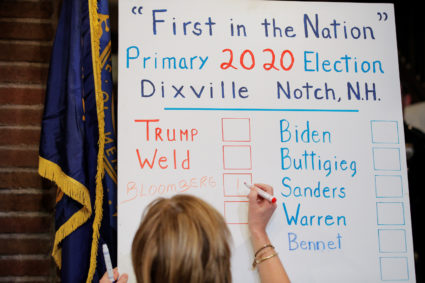 "First in the Nation"
Primary 2020 Election
Dixville Notch, N.H.
TRUMP
WELD
BLOOMBERG 1
Biden
Buttigieg
Sanders
Warren
Bennet